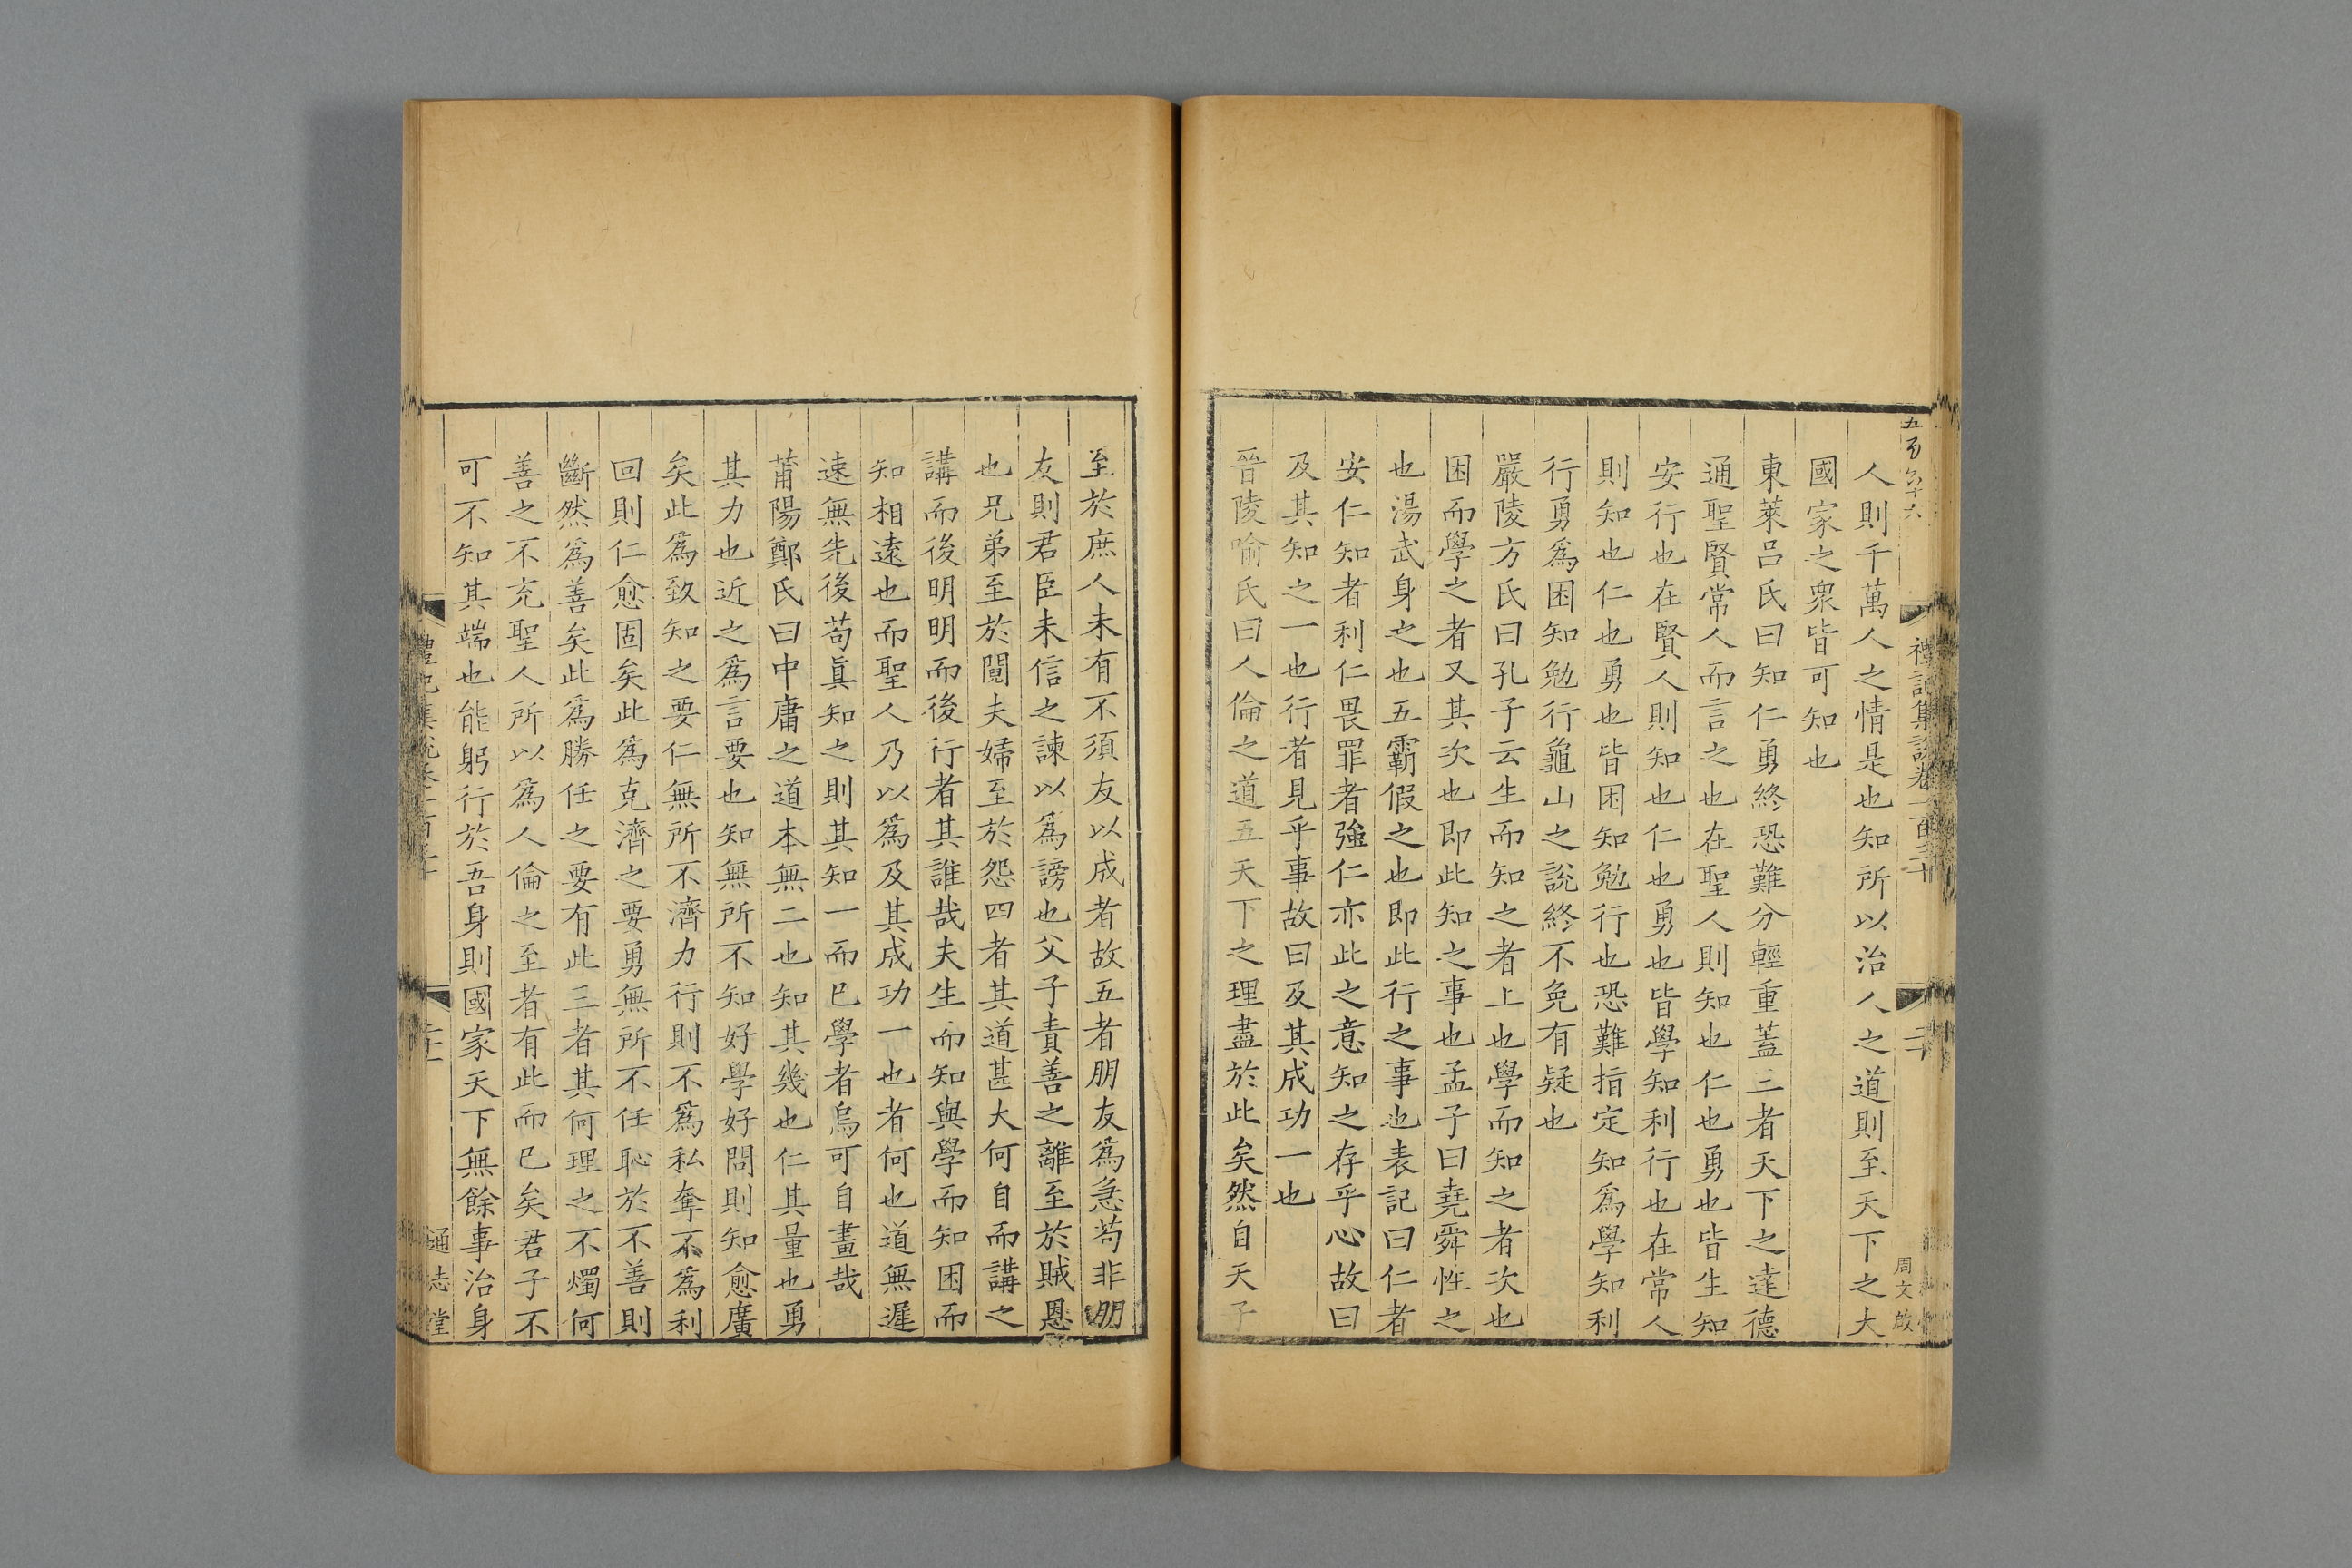 人則千萬人之情是也知所以治人之道則至天下之大
國家之衆皆可知也
東萊呂氏曰知仁勇終恐難分輕重蓋三者天下之達德
通聖賢常人而言之也在聖人則知也仁也勇也皆生知
安行也在賢人則知也仁也勇也皆學知利行也在常人
則知也仁也勇也皆困知勉行也恐難指定知爲學知利
行勇爲困知勉行龜山之說終不免有疑也
嚴陵方氏曰孔子云生而知之者上也學而知之者次也
困而學之者又其次也即此知之事也孟子曰堯舜性之
也湯武身之也五霸假之也即此行之事也表記曰仁者
安仁知者利仁畏罪者強仁亦此之意知之存乎心故曰
及其知之一也行者見乎事故曰及其成功一也
晉陵喻氏曰人倫之道五天下之理盡於此矣然自天子
禮記集說卷一百三十
二十
周文啟
至於庶人未有不須友以成者故五者朋友爲急苟非朋
友則君臣未信之諫以爲謗也父子責善之離至於賊恩
也兄弟至於鬩夫婦至於怨四者其道甚大何自而講之
講而後明明而後行者其誰哉夫生而知與學而知困而
知相遠也而聖人乃以爲及其成功一也者何也道無遲
速無先後苟眞知之則其知一而已學者烏可自畫哉
莆陽鄭氏曰中庸之道本無二也知其幾也仁其量也勇
其力也近之爲言要也知無所不知好學好問則知愈廣
矣此爲致知之要仁無所不濟力行則不爲私奪不爲利
回則仁愈固矣此爲克濟之要勇無所不任恥於不善則
斷然爲善矣此爲勝任之要有此三者其何理之不燭何
善之不充聖人所以爲人倫之至者有此而已矣君子不
可不知其端也能躬行於吾身則國家天下無餘事治身
通志堂